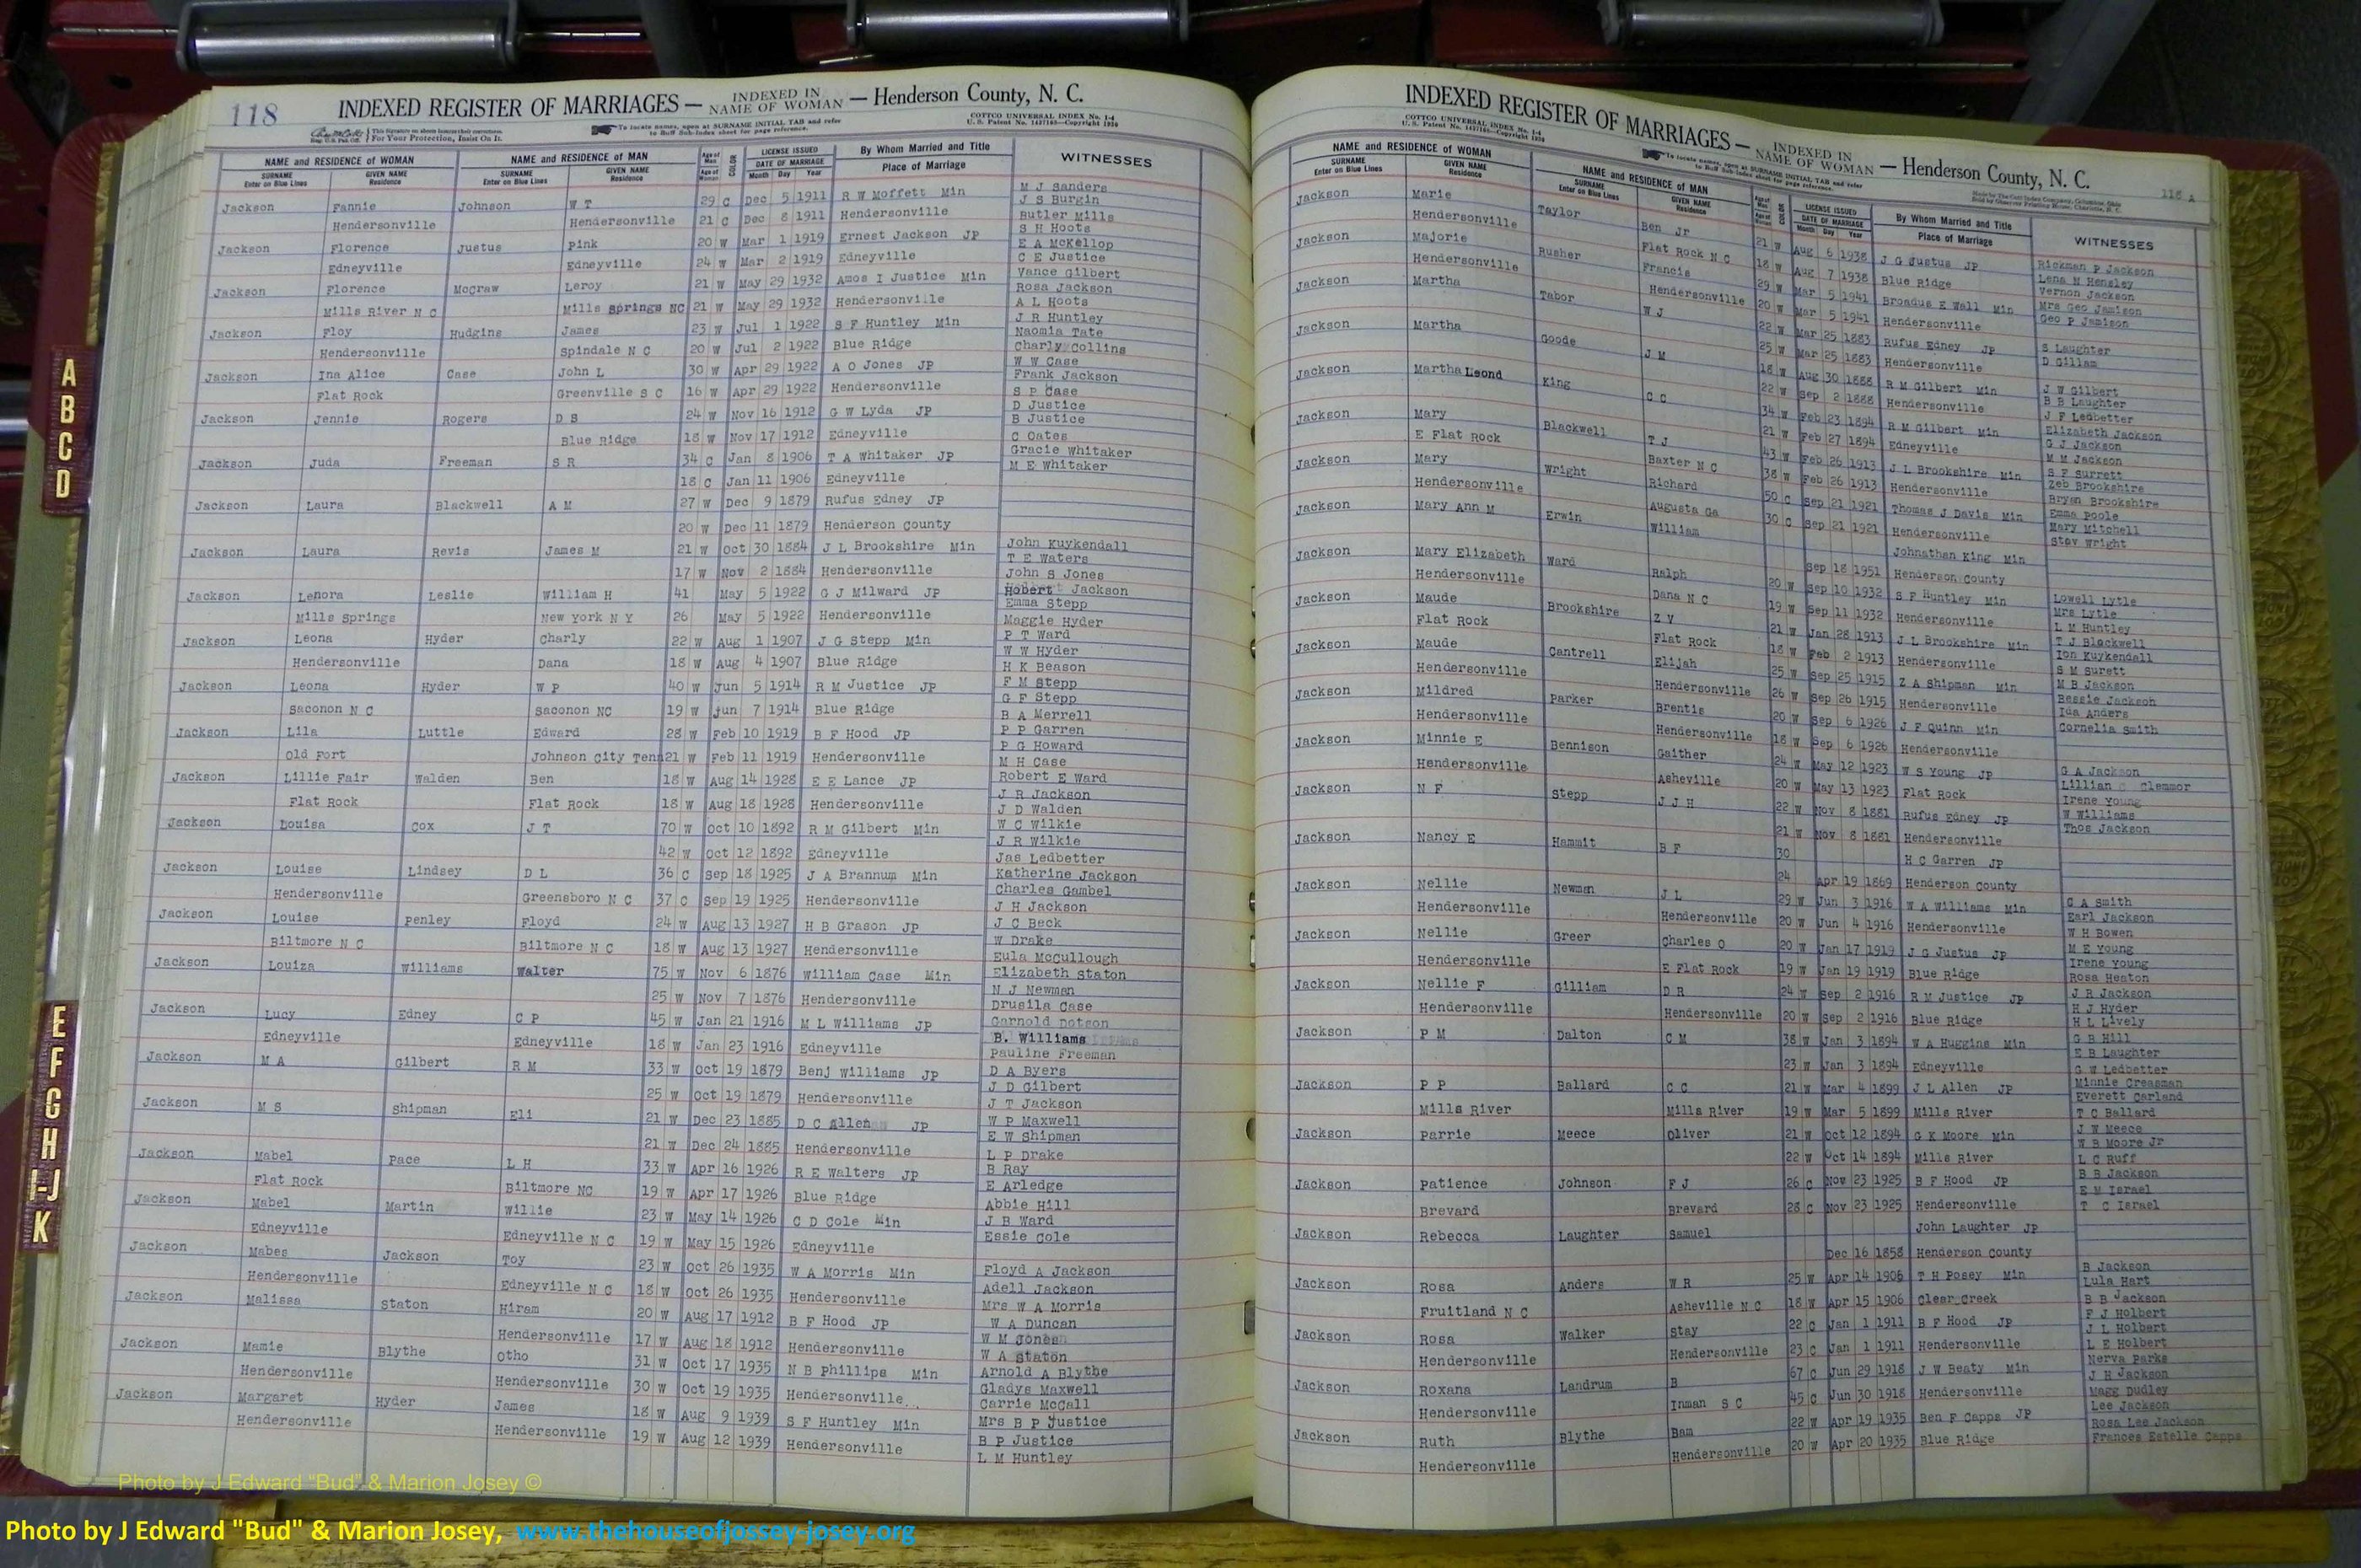 118
INDEXED REGISTER OF MARRIAGES — INDEXED IN NAME OF WOMAN — Henderson County, N. C.
This Signature on sheets insures their correctness.
For Your Protection, Insist On It.
To locate names, open at SURNAME INITIAL TAB and refer to Buff Sub-Index sheet for page reference.
COTTCO UNIVERSAL INDEX No. 1-4
U. S. Patent No. 1437165—Copyright 1930
NAME and RESIDENCE OF WOMAN NAME and RESIDENCE OF MAN Age of Man Age of Woman COLOR LICENSE ISSUED DATE OF MARRIAGE By Whom Married and Title Place of Marriage WITNESSES
SURNAME Enter on Blue Lines GIVEN NAME Residence SURNAME Enter on Blue Lines GIVEN NAME Residence Month Day Year
Jackson Fannie Johnson W T 29 C Dec 5 1911 R W Moffett Min M J Sanders
J S Burgin
Hendersonville Hendersonville 21 C Dec 8 1911 Hendersonville Butler Mills
Jackson Florence Justus Pink 20 W Mar 1 1919 Ernest Jackson JP S H Hoots
E A McKellop
Edneyville Edneyville 24 W Mar 2 1919 Edneyville C E Justice
Jackson Florence McCraw Leroy 21 W May 29 1932 Amos I Justice Min Vance Gilbert
Rosa Jackson
Mills River N C Mills Springs NC 21 W May 29 1932 Hendersonville A L Hoots
Jackson Floy Hudgins James 23 W Jul 1 1922 S F Huntley Min J R Huntley
Naomia Tate
Hendersonville Spindale N C 20 W Jul 2 1922 Blue Ridge Charly Collins
Jackson Ina Alice Case John L 30 W Apr 29 1922 A O Jones JP W W Case
Frank Jackson
Flat Rock Greenville S C 16 W Apr 29 1922 Hendersonville S P Case
Jackson Jennie Rogers D S 24 W Nov 16 1912 G W Lyda JP D Justice
B Justice
Blue Ridge 18 W Nov 17 1912 Edneyville C Oates
Jackson Juda Freeman S R 34 C Jan 8 1906 T A Whitaker JP Gracie Whitaker
M E Whitaker
18 C Jan 11 1906 Edneyville
Jackson Laura Blackwell A M 27 W Dec 9 1879 Rufus Edney JP
20 W Dec 11 1879 Henderson County
Jackson Laura Revis James M 21 W Oct 30 1884 J L Brookshire Min John Kuykendall
T E Waters
17 W Nov 2 1884 Hendersonville John S Jones
Jackson Lenora Leslie William H 41 May 5 1922 G J Milward JP Hobert Jackson
Emma Stepp
Mills Springs New York N Y 26 May 5 1922 Hendersonville Maggie Hyder
Jackson Leona Hyder Charly 22 W Aug 1 1907 J G Stepp Min P T Ward
W W Hyder
Hendersonville Dana 18 W Aug 4 1907 Blue Ridge H K Beason
Jackson Leona Hyder W P 40 W Jun 5 1914 R M Justice JP F M Stepp
G F Stepp
Saconon N C Saconon NC 19 W Jun 7 1914 Blue Ridge B A Merrell
Jackson Lila Luttle Edward 28 W Feb 10 1919 B F Hood JP P P Garren
P G Howard
Old Fort Johnson City Tenn 21 W Feb 11 1919 Hendersonville M H Case
Jackson Lillie Fair Walden Ben 18 W Aug 14 1928 E E Lance JP Robert E Ward
J R Jackson
Flat Rock Flat Rock 18 W Aug 18 1928 Hendersonville J D Walden
Jackson Louisa Cox J T 70 W Oct 10 1892 R M Gilbert Min W C Wilkie
J R Wilkie
42 W Oct 12 1892 Edneyville Jas Ledbetter
Jackson Louise Lindsey D L 36 C Sep 18 1925 J A Brannum Min Katherine Jackson
Charles Gambel
Hendersonville Greensboro N C 37 C Sep 19 1925 Hendersonville J H Jackson
Jackson Louise Penley Floyd 24 W Aug 13 1927 H B Grason JP J C Beck
W Drake
Biltmore N C Biltmore N C 18 W Aug 13 1927 Hendersonville Eula McCullough
Jackson Louiza Williams Walter 75 W Nov 6 1876 William Case Min Elizabeth Staton
N J Newman
25 W Nov 7 1876 Hendersonville Drusila Case
Jackson Lucy Edney C P 45 W Jan 21 1916 M L Williams JP Garnold Dotson
B. Williams
Edneyville Edneyville 18 W Jan 23 1916 Edneyville Pauline Freeman
Jackson M A Gilbert R M 33 W Oct 19 1879 Benj Williams JP D A Byers
J D Gilbert
25 W Oct 19 1879 Hendersonville J T Jackson
Jackson M S Shipman Eli 21 W Dec 23 1885 D C Allen JP W P Maxwell
E W Shipman
21 W Dec 24 1885 Hendersonville L P Drake
Jackson Mabel Pace L H 33 W Apr 16 1926 R E Walters JP B Ray
E Arledge
Flat Rock Biltmore NC 19 W Apr 17 1926 Blue Ridge Abbie Hill
Jackson Mabel Martin Willie 23 W May 14 1926 C D Cole Min J B Ward
Essie Cole
Edneyville Edneyville N C 19 W May 15 1926 Edneyville
Jackson Mabes Jackson Toy 23 W Oct 26 1935 W A Morris Min Floyd A Jackson
Adell Jackson
Hendersonville Edneyville N C 18 W Oct 26 1935 Hendersonville Mrs W A Morris
Jackson Malissa Staton Hiram 20 W Aug 17 1912 B F Hood JP W A Duncan
W M Jones
Hendersonville 17 W Aug 18 1912 Hendersonville W A Staton
Jackson Mamie Blythe Otho 31 W Oct 17 1935 N B Phillips Min Arnold A Blythe
Gladys Maxwell
Hendersonville Hendersonville 30 W Oct 19 1935 Hendersonville Carrie McCall
Jackson Margaret Hyder James 18 W Aug 9 1939 S F Huntley Min Mrs B P Justice
B P Justice
Hendersonville Hendersonville 19 W Aug 12 1939 Hendersonville L M Huntley
INDEXED REGISTER OF MARRIAGES — INDEXED IN NAME OF WOMAN — Henderson County, N. C.
COTTCO UNIVERSAL INDEX No. 1-4
U. S. Patent No. 1437165—Copyright 1930
To locate names, open at SURNAME INITIAL TAB and refer to Buff Sub-Index sheet for page reference.
118 A
NAME and RESIDENCE OF WOMAN NAME and RESIDENCE OF MAN LICENSE ISSUED DATE OF MARRIAGE By Whom Married and Title Place of Marriage WITNESSES
SURNAME Enter on Blue Lines GIVEN NAME Residence SURNAME Enter on Blue Lines GIVEN NAME Residence Month Day Year
Jackson Marie Taylor Ben Jr 21 W Aug 6 1938 J G Justus JP Rickman P Jackson
Lena M Hensley
Hendersonville Flat Rock N C 18 W Aug 7 1938 Blue Ridge Vernon Jackson
Jackson Majorie Rusher Francis 29 W Mar 5 1941 Broadus E Wall Min Mrs Geo Jamison
Geo P Jamison
Hendersonville Hendersonville 20 W Mar 5 1941 Hendersonville
Jackson Martha Tabor W J 22 W Mar 25 1883 Rufus Edney JP S Laughter
D Gillam
25 W Mar 25 1883 Hendersonville
Jackson Martha Goode J M 18 W Aug 30 1888 R M Gilbert Min J W Gilbert
B B Laughter
22 W Sep 2 1888 Hendersonville J F Ledbetter
Jackson Martha Leond King C C 34 W Feb 23 1894 R M Gilbert Min Elizabeth Jackson
G J Jackson
21 W Feb 27 1894 Edneyville M M Jackson
Jackson Mary Blackwell T J 43 W Feb 26 1913 J L Brookshire Min S F Surrett
Zeb Brookshire
E Flat Rock Baxter N C 38 W Feb 26 1913 Hendersonville Bryan Brookshire
Jackson Mary Wright Richard 50 C Sep 21 1921 Thomas J Davis Min Emma Poole
Mary Mitchell
Hendersonville Augusta Ga 30 C Sep 21 1921 Hendersonville Stov Wright
Jackson Mary Ann M Erwin William Johnathan King Min
Sep 18 1951 Henderson County
Jackson Mary Elizabeth Ward Ralph 20 W Sep 10 1932 S F Huntley Min Lowell Lytle
Mrs Lytle
Hendersonville Dana N C 19 W Sep 11 1932 Hendersonville L M Huntley
Jackson Maude Brookshire Z V 21 W Jan 28 1913 J L Brookshire Min T J Blackwell
Ion Kuykendall
Flat Rock Flat Rock 18 W Feb 2 1913 Hendersonville S M Surett
Jackson Maude Cantrell Elijah 25 W Sep 25 1915 Z A Shipman Min M B Jackson
Bessie Jackson
Hendersonville Hendersonville 26 W Sep 26 1915 Hendersonville Ida Anders
Jackson Mildred Parker Brentis 20 W Sep 6 1926 J F Quinn Min Cornelia Smith
Hendersonville Hendersonville 18 W Sep 6 1926 Hendersonville
Jackson Minnie E Bennison Gaither 24 W May 12 1923 W S Young JP G A Jackson
Lillian C Clemmor
Hendersonville Asheville 20 W May 13 1923 Flat Rock Irene Young
Jackson N F Stepp J J H 22 W Nov 8 1881 Rufus Edney JP W Williams
Thos Jackson
21 W Nov 8 1881 Hendersonville
Jackson Nancy E Hammit B F 30 H C Garren JP
24 Apr 19 1869 Henderson County
Jackson Nellie Newman J L 29 W Jun 3 1916 W A Williams Min C A Smith
Earl Jackson
Hendersonville Hendersonville 20 W Jun 4 1916 Hendersonville W H Bowen
Jackson Nellie Greer Charles O 20 W Jan 17 1919 J G Justus JP M E Young
Irene Young
Hendersonville E Flat Rock 19 W Jan 19 1919 Blue Ridge Rosa Heaton
Jackson Nellie F Gilliam D R 24 W Sep 2 1916 R M Justice JP J R Jackson
H J Hyder
Hendersonville Hendersonville 20 W Sep 2 1916 Blue Ridge H L Lively
Jackson P M Dalton C M 38 W Jan 3 1894 W A Huggins Min G B Hill
E B Laughter
23 W Jan 3 1894 Edneyville G W Ledbetter
Jackson P P Ballard C C 21 W Mar 4 1899 J L Allen JP Minnie Creasman
Everett Garland
Mills River Mills River 19 W Mar 5 1899 Mills River T C Ballard
Jackson Parrie Meece Oliver 21 W Oct 12 1894 G K Moore Min J W Meece
W B Moore Jr
22 W Oct 14 1894 Mills River L C Ruff
Jackson Patience Johnson F J 26 C Nov 23 1925 B F Hood JP B B Jackson
E M Israel
Brevard Brevard 28 C Nov 23 1925 Hendersonville T C Israel
Jackson Rebecca Laughter Samuel John Laughter JP
Dec 16 1858 Henderson County
Jackson Rosa Anders W R 25 W Apr 14 1906 T H Posey Min B Jackson
Lula Hart
Fruitland N C Asheville N C 18 W Apr 15 1906 Clear Creek B B Jackson
Jackson Rosa Walker Stay 22 C Jan 1 1911 B F Hood JP F J Holbert
J L Holbert
Hendersonville Hendersonville 23 C Jan 1 1911 Hendersonville L E Holbert
Jackson Roxana Landrum B 67 C Jun 29 1918 J W Beaty Min Nerva Parks
J H Jackson
Hendersonville Inman S C 45 C Jun 30 1918 Hendersonville Magg Dudley
Jackson Ruth Blythe Bam 22 W Apr 19 1935 Ben F Capps JP Lee Jackson
Rosa Lee Jackson
Hendersonville Hendersonville 20 W Apr 20 1935 Blue Ridge Frances Estelle Capps
A
B
C
D
E
F
G
H
I-J
K
Photo by J Edward "Bud" & Marion Josey ©
Photo by J Edward "Bud" & Marion Josey, www.thehouseofjossey-josey.org